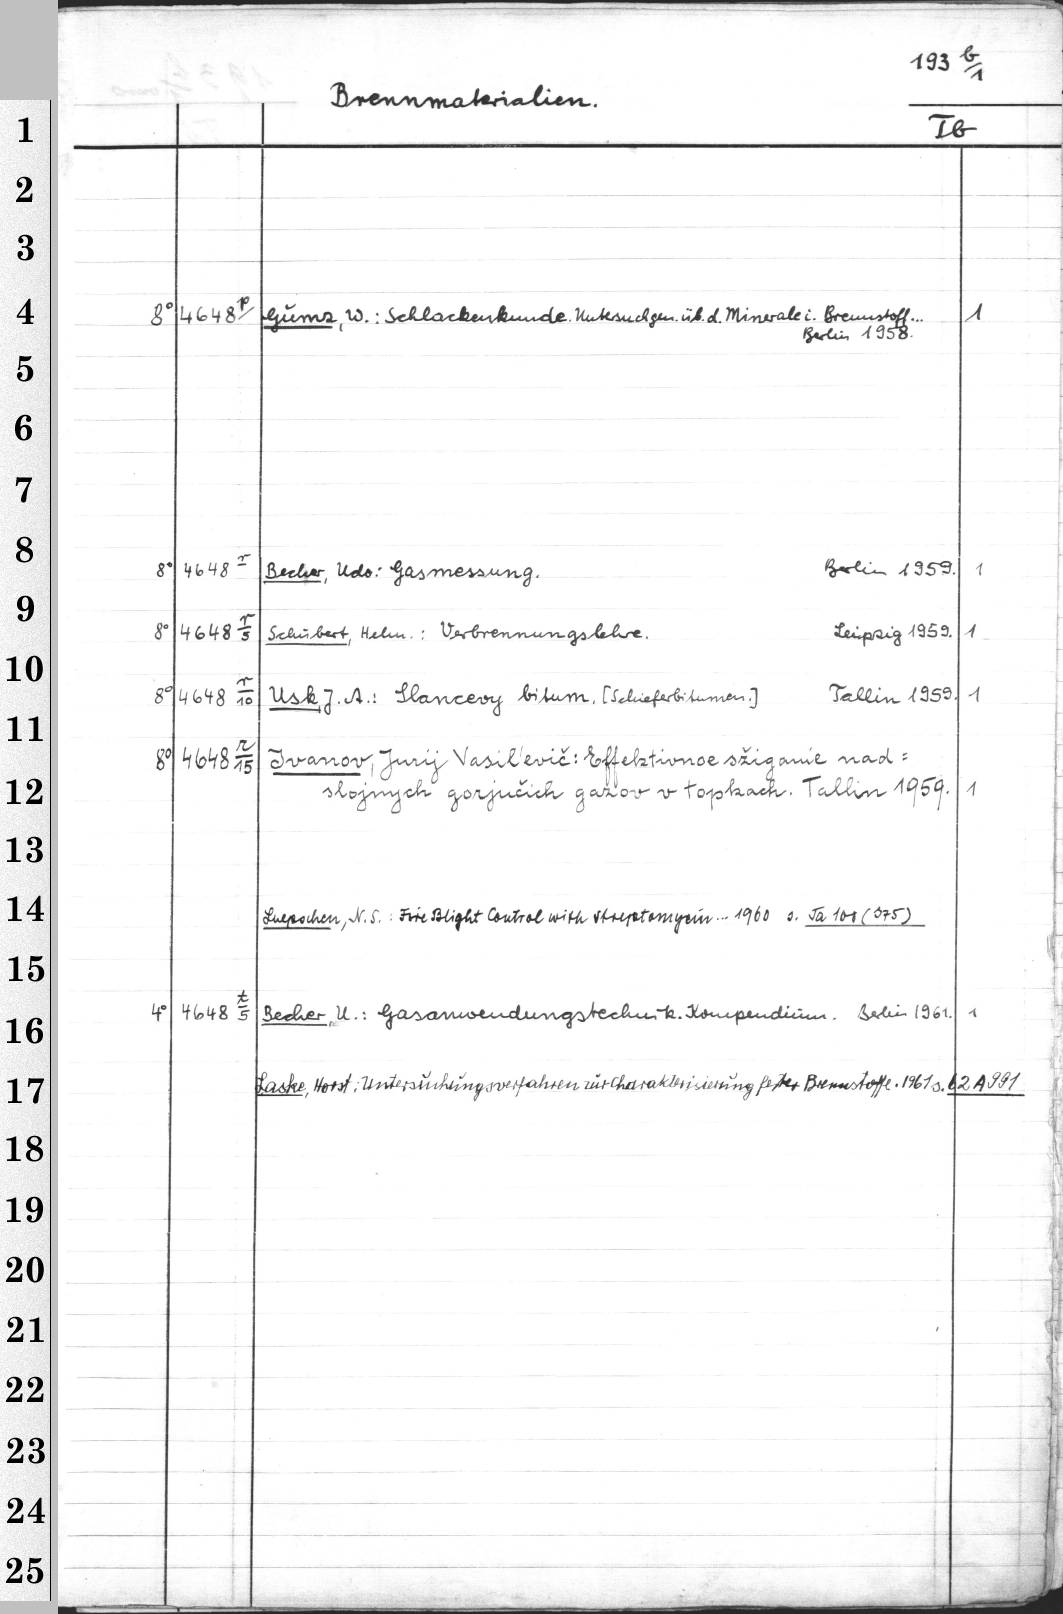 193 b/1
Brennmaterialien.
Ib
1
2
3
4 8° 4648 p/ Gumz, W.: Schlackenkunde. Untersuchgen. üb. d. Minerale i. Brennstoff... 1
Berlin 1958.
5
6
7
8 8° 4648 r Becher, Udo: Gasmessung. Berlin 1959. 1
9 8° 4648 r/5 Schubert, Helm.: Verbrennungslehre. Leipzig 1959. 1
10 8° 4648 r/10 Usk, J. A.: Slancevy bitum. [Schieferbitumen.] Tallin 1959. 1
11 8° 4648 r/15 Ivanov, Jurij Vasil'evič: Effektivnoe sžiganie nad=
12 slojnych gorjučich gazov v topkach. Tallin 1959. 1
13
14 Luepschen, N. S.: Fire Blight Control with Streptomycin... 1960 s. Ja 101 (375)
15
16 4° 4648 t/5 Becher, U.: Gasanwendungstechnik. Kompendium. Berlin 1961. 1
17 Laske, Horst: Untersuchungsverfahren zur Charakterisierung fester Brennstoffe. 1961 s. 62 A 991
18
19
20
21
22
23
24
25